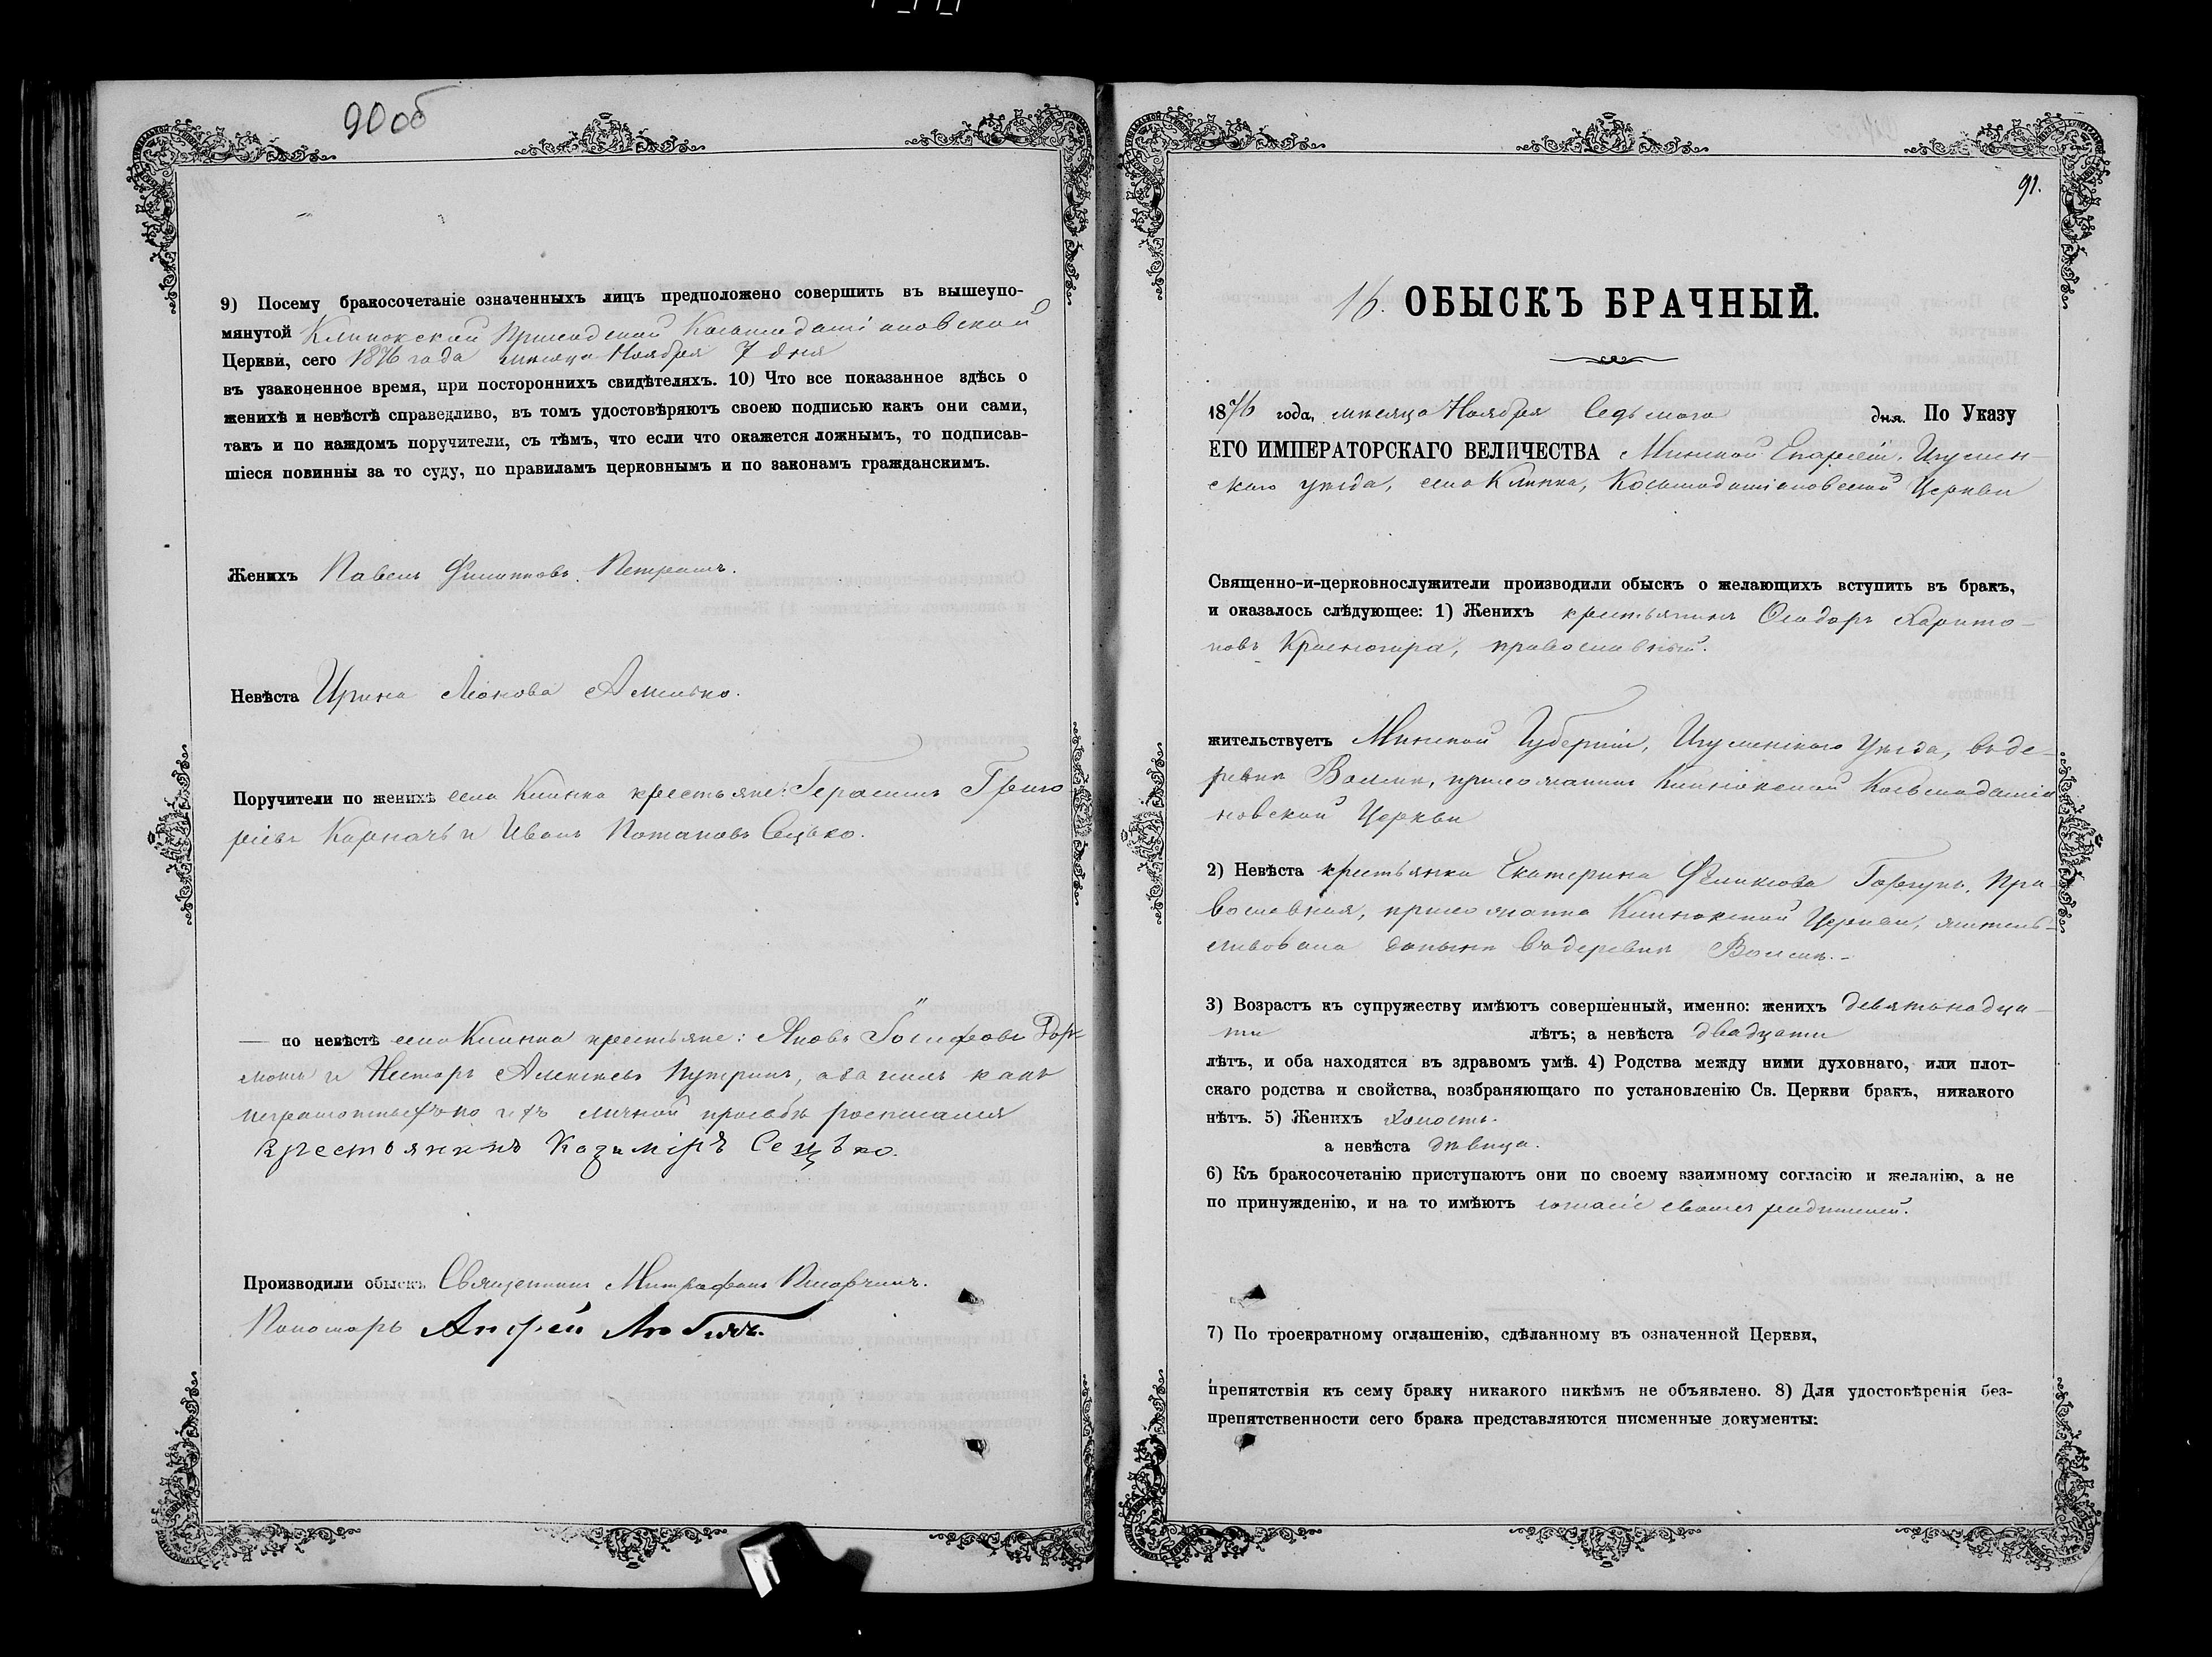 90об
9) Посему бракосочетаніе означенныхъ лицъ предположено совершить въ вышеупо-
мянутой Клинокской Приходской Косьмодаміановской
Церкви, сего 1876 года мѣсяца Ноября 7 дня
въ узаконенное время, при постороннихъ свидѣтеляхъ. 10) Что все показанное здѣсь о
женихѣ и невѣстѣ справедливо, въ томъ удостовѣряютъ своею подписью какъ они сами,
такъ и по каждомъ поручители, съ тѣмъ, что если что окажется ложнымъ, то подписав-
шіеся повинны за то суду, по правиламъ церковнымъ и по законамъ гражданскимъ.
Женихъ Павелъ Филипповъ Петрашъ.
Невѣста Ирина Леонова Амелько.
Поручители по женихѣ села Клинка крестьяне: Герасимъ Григо
рьевъ Карначъ и Иванъ Потаповъ Сецько.
— по невѣстѣ села Клинка крестьяне: Яковъ Іосифовъ
и Несторъ Алексѣевъ а за нихъ какъ
неграмотныхъ по ихъ личной просьбѣ росписался
Крестьянинъ Казиміръ Сецько.
Производили обыскъ Священникъ Митрофанъ
Пономарь Андрей
91.
16. ОБЫСКЪ БРАЧНЫЙ.
1876 года, мѣсяца Ноября Седьмаго дня. По Указу
ЕГО ИМПЕРАТОРСКАГО ВЕЛИЧЕСТВА Минской Епархіи, Игумен-
скаго уѣзда, села Клинка, Косьмодаміановской Церкви
Священно-и-церковнослужители производили обыскъ о желающихъ вступить въ бракъ,
и оказалось слѣдующее: 1) Женихъ крестьянинъ Ѳеодоръ Харито-
новъ православный.
жительствуетъ Минской Губерніи, Игуменскаго Уѣзда, въ де-
ревнѣ прихожанинъ Клинокской Косьмодаміа
новской Церкви
2) Невѣста крестьянка Екатерина Феликсова Горгунъ, Пра-
вославная, прихожанка Клинокской Церкви, житель-
ствовала донынѣ въ деревнѣ
3) Возрастъ къ супружеству имѣютъ совершенный, именно: женихъ девятнадца-
ти лѣтъ; а невѣста двадцати
лѣтъ, и оба находятся въ здравомъ умѣ. 4) Родства между ними духовнаго, или плот-
скаго родства и свойства, возбраняющаго по установленію Св. Церкви бракъ, никакого
нѣтъ. 5) Женихъ холостъ.
а невѣста дѣвица.
6) Къ бракосочетанію приступаютъ они по своему взаимному согласію и желанію, а не
по принужденію, и на то имѣютъ согласіе своихъ родителей.
7) По троекратному оглашенію, сдѣланному въ означенной Церкви,
препятствія къ сему браку никакого никѣмъ не объявлено. 8) Для удостовѣренія без-
препятственности сего брака представляются писменные документы: